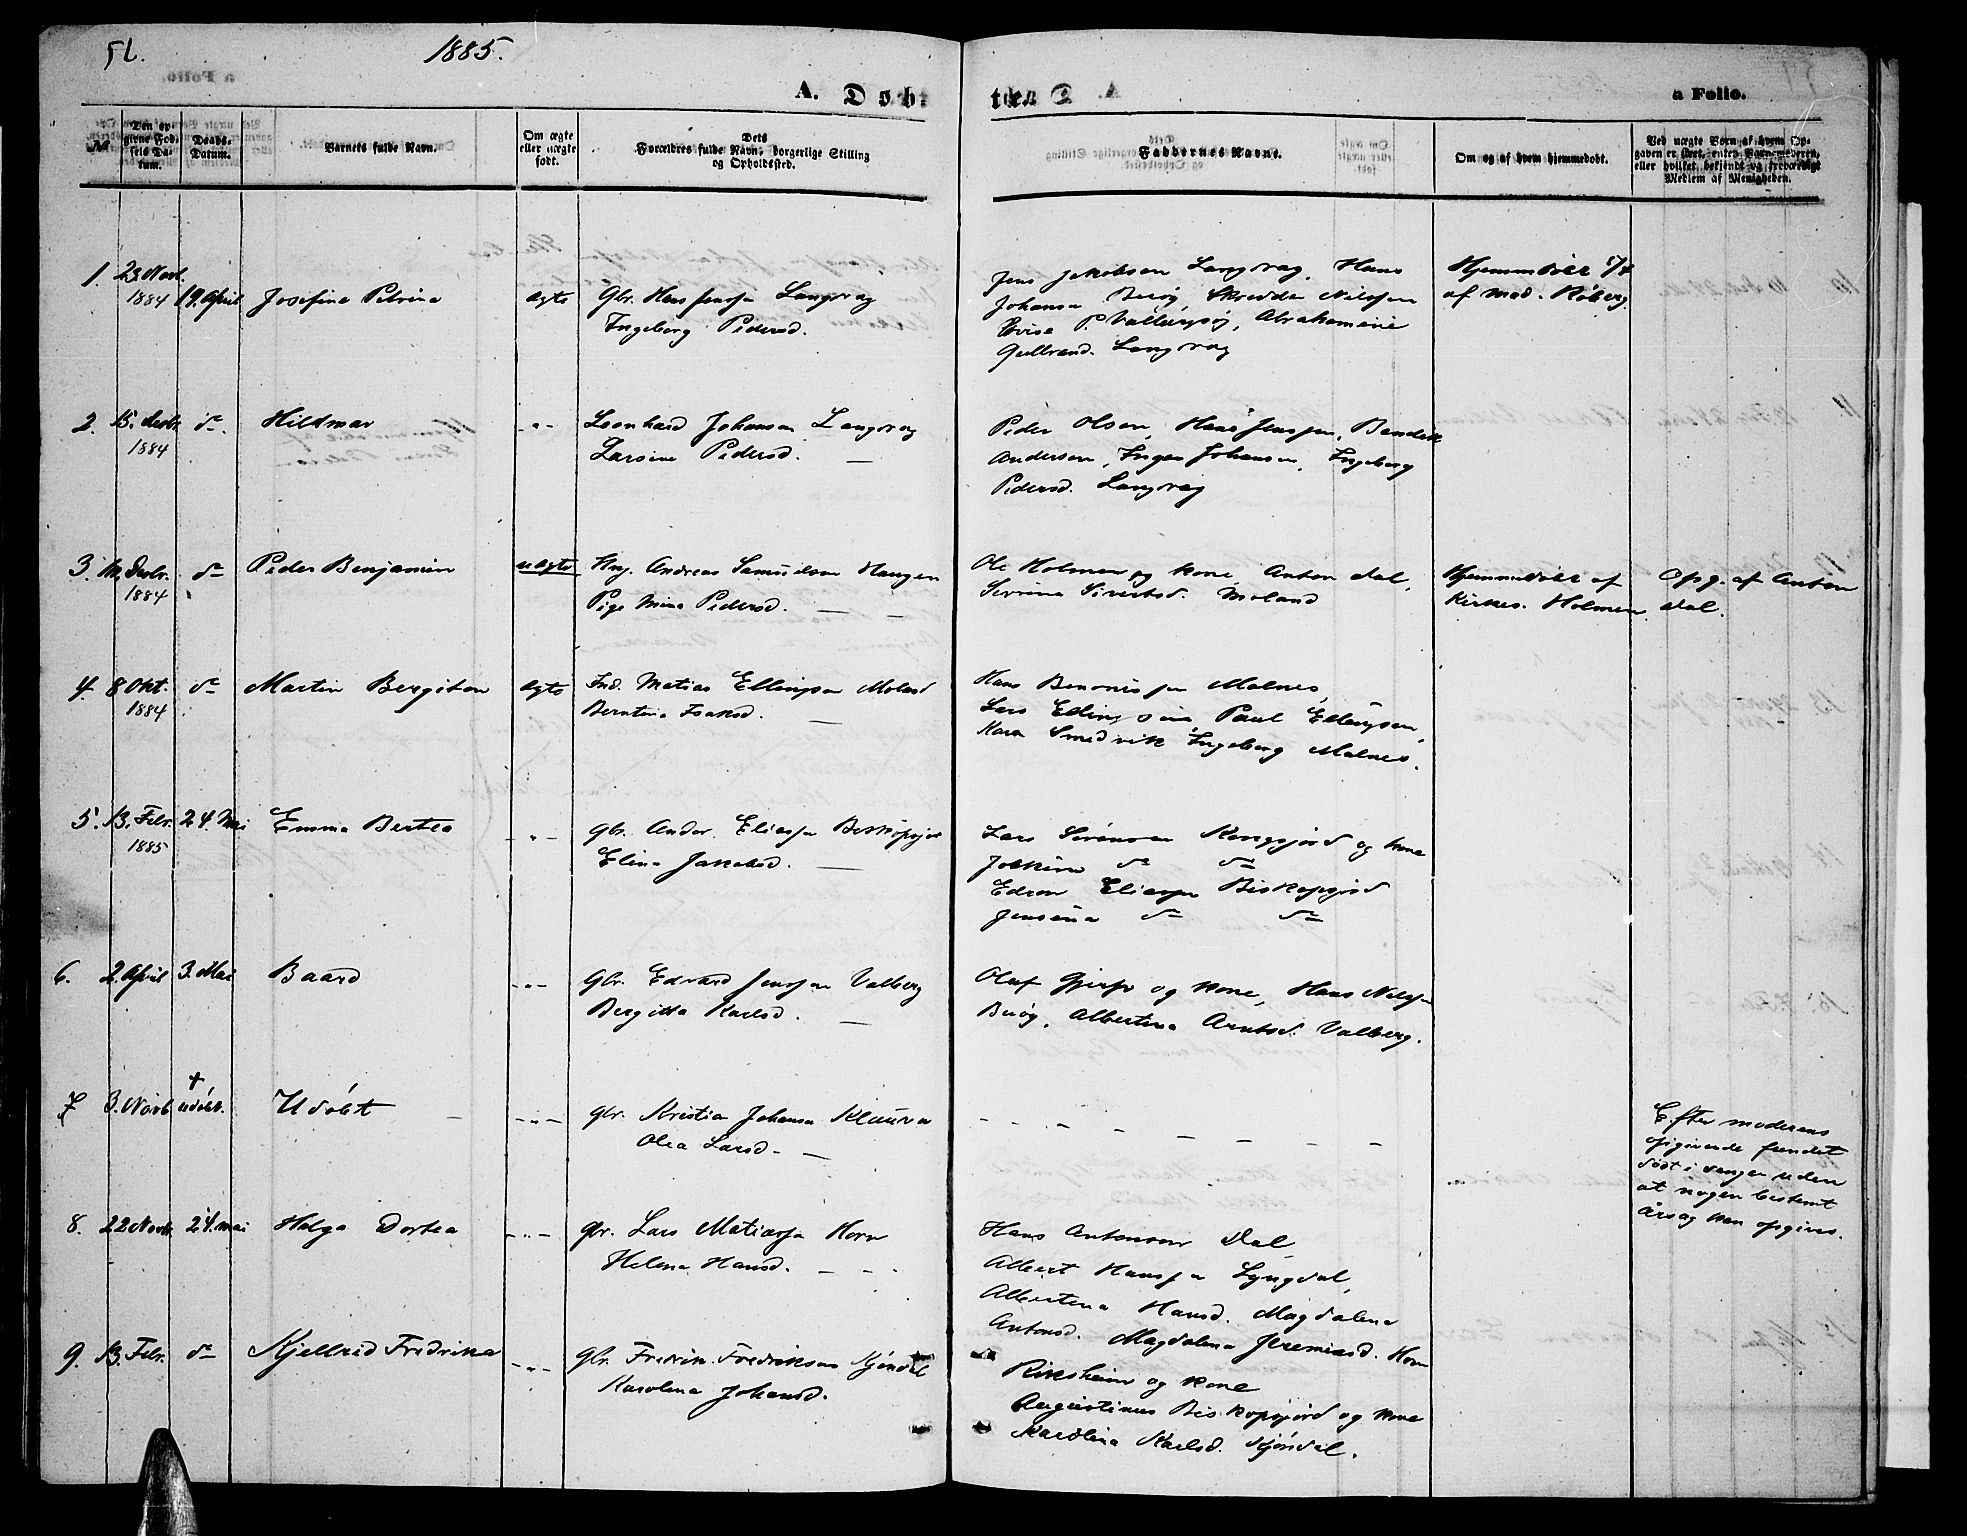 1885.
A. Døb
te.
a Folio.
№
Den opgivne Fødsels Datum.
Daabs-Datum.
Barnets fulde Navn.
Om ægte eller uægte født.
Dets Forældres fulde Navn, borgerlige Stilling og Opholdssted.
Faddernes Navne.
Om og af hvem hjemmedøbt.
Ved uægte Børn af hvem Opgaven er skeet, enten Barnemoderen, eller hvilket bekjendt og troværdigt Medlem af Menigheden.
1. 23 Novb. 1884 19. April Josefine Petrine ægte
Gbr. Hans Jensen Langvag
Ingeborg Pedersd.
Jens Jakobsen Langvag, Hans
Johansen Berøg Skrædder Nilssen
P. Vallersøg, Abrahamine
Langvag
Hjemmedøbt 1/4
af mad. Røberg.
2. 15. Desbr. 1884 do. Hildmar -"-
Leonhard Johansen Langvag
Larsine Pedersd. —
Peder Olsen, Hans Jenssen, Bendik
Andersen, Inger Johansen, Ingeborg
Pedersd. Langvag
3. Desbr. 1884 do Peder Benjamin uægte
Ung. Andreas Samuelsen Haugen
Pige Mina Pedersd. — —
Ole Holmen og kone, Anton Dal,
Serina Sivertsd. Moland
Hjemmedøbt af
Kirkes. Holmen
Opg. af Anton
Dal.
4. 8 Okt. 1884 do Martin Bergiton ægte
Ind. Matias Ellingsen Moland
Berntine Isaksd. —
Hans Benonissen Malnes,
Lars Ellingsen, Paul Ellingsen,
Karen Smedvik Ingeborg Malnes.
5. 13. Febr. 1885 24. Mai Emma Bertea -"-
gbr. Andor. Eliassen Biskopsjor
Elina Jakobsd. —
Lars Sørensen Kongsjord og kone
Jokkine do do
Edvar Eliassen Biskopsjord
Jensina do do
6. 2. April 3. Mai Baard -"-
gbr. Edvard Jenssen Valberg
Bergitta Karlsd. —
Oluf Gjerp og kone, Hans Nilss
Berøg, Albertine Arntsd. Valberg.
7 3. Novb + udøbt. Udøbt — -"-
gbr. Kristia Johansen Klauva
Olea Larsd. —
- - - - - - - -
Efter moderens
opgivende fundet
død i sengen uden
at nogen bestemt
årsag kan opgives.
8. 22 Novb. 24. mai Helga Dortea -"-
gbr. Lars Matiassen Horn
Helena Hansd. — - -
Hans Antonsen Dal
Albert Hanssen Lyngdal,
Albertina Hansd. Magdalena
Antonsd. Magdalena Jeremiasd. Horn
9. 13. Febr. do Kjellrid Fredrikke -"-
gbr. Fredrik Fredriksen Sjøndal
Karolina Johansd.
Riksheim og kone
Augustinus Biskopsjord og kone
Karolina Karlsd. Sjøndal.